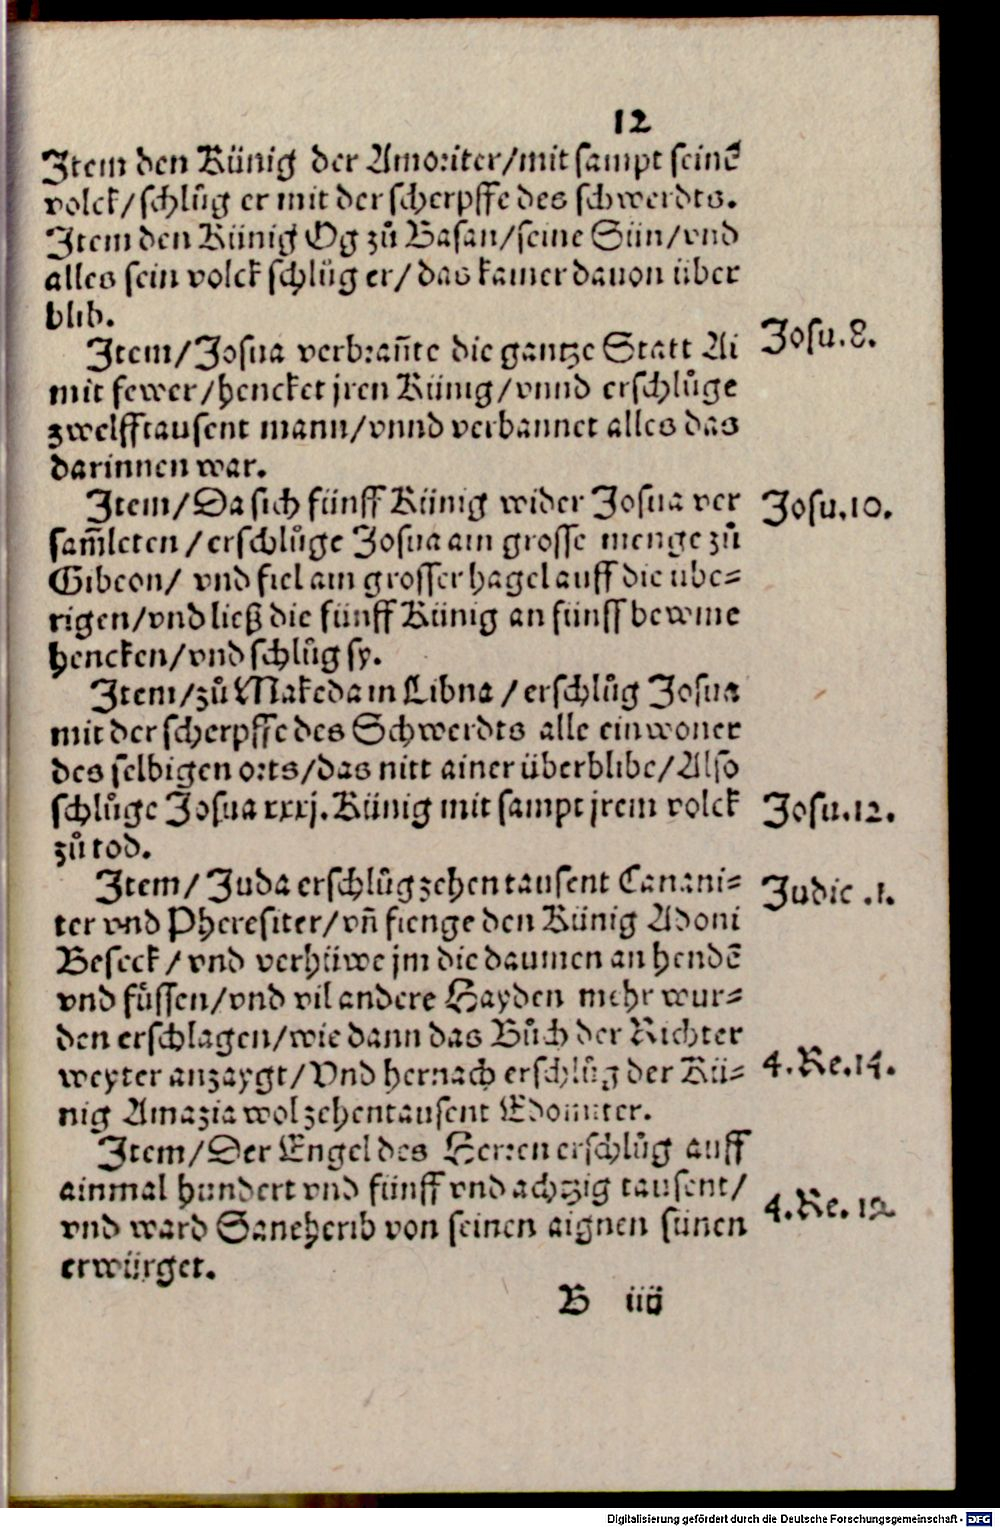 12
Item den Künig der Amoriter/mit sampt seinē
volck/schlůg er mit der scherpffe des schwerdts.
Item den Künig Og zů Basan/seine Sün/vnd
alles sein volck schlůg er/das kainer dauon über
blib.
Item/Josua verbrañte die gantze Statt Ai
Josu.8.
mit fewer/hencket jren Künig/vnnd erschlůge
zwelfftausent mann/vnnd verbannet alles das
darinnen war.
Item/Da sich fünff Künig wider Josua ver
Josu.10.
sam̃leten/erschlůge Josua ain grosse menge zů
Gibeon/ vnd fiel ain grosser hagel auff die übe-
rigen/vnd ließ die fünff Künig an fünff bewme
hencken/vnd schlůg sy.
Item/zů Makeda in Libna/erschlůg Josua
mit der scherpffe des Schwerdts alle einwoner
des selbigen orts/das nitt ainer überblibe/Also
schlůge Josua xxxj. Künig mit sampt jrem volck
Josu.12.
zů tod.
Item/Juda erschlůg zehen tausent Canani-
Judic .1.
ter vnd Pheresiter/vñ fienge den Künig Adoni
Beseck/vnd verhüwe jm die daumen an hendē
vnd füssen/vnd vil andere Hayden mehr wur-
den erschlagen/wie dann das Bůch der Richter
weyter anzaygt/Vnd hernach erschlůg der Kü-
4.Re.14.
nig Amazia wol zehentausent Edomiter.
Item/Der Engel des Herren erschlůg auff
ainmal hundert vnd fünff vnd achtzig tausent/
4.Re.19.
vnd ward Saneherib von seinen aignen sünen
erwürget.
B iiij
Digitalisierung gefördert durch die Deutsche Forschungsgemeinschaft - DFG